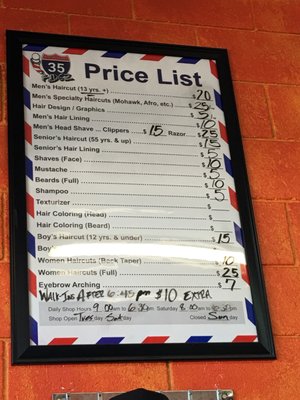 35
Price List
Men's Haircut (13 yrs. +) $ 20
Men's Specialty Haircuts (Mohawk, Afro, etc.) $ 25
Hair Design / Graphics $ 5
Men's Hair Lining $ 10
Men's Head Shave ... Clippers $ 15 Razor $ 25
Senior's Haircut (55 yrs. & up) $ 15
Senior's Hair Lining $ 5
Shaves (Face) $ 10
Mustache $ 5
Beards (Full) $ 10
Shampoo $ 5
Texturizer $
Hair Coloring (Head) $
Hair Coloring (Beard) $
Boy's Haircut (12 yrs. & under) $ 15
Boy's
Women Haircuts (Back Taper) $ 10
Women Haircuts (Full) $ 25
Eyebrow Arching $ 7
WALK-INS AFTER 6:45 pm $10 EXTRA
Daily Shop Hours 9:00 am to pm Saturday 8:00 am to pm
Shop Open Tues to Saturday Closed Sun